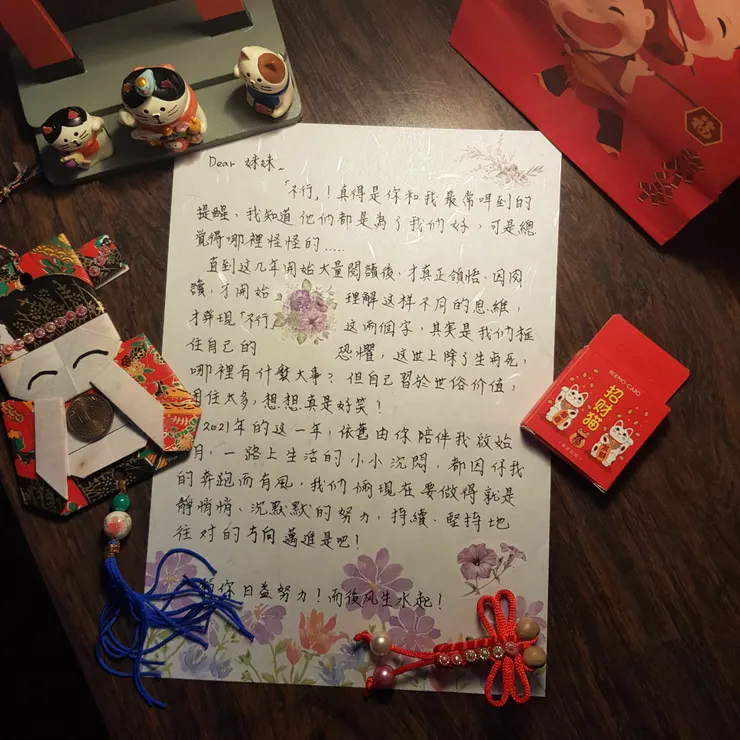 Dear 妹妹~
「不行」！真得是你和我最常聽到的
提醒，我知道他们都是為了我們好，可是總
覺得哪裡怪怪的.....
直到这几年開始大量閱讀後，才真正領悟、因閱
讀，才開始 理解这样不同的思維，
才發現「不行」 这兩個字，其实是我们框
住自己的 恐懼，这世上除了生与死，
哪裡有什麼大事？但自己習於世俗价值，
困住太多，想想真是好笑！
2021年的这一年，依舊由你陪伴我啟始
月，一路上生活的小小沉悶，都因伴我
的奔跑而有風，我们倆現在要做得就是
靜悄悄、沉默默的努力，持續、堅持地
往对的方向邁進是吧！
你日益努力！而後风生水起！
福
招财猫